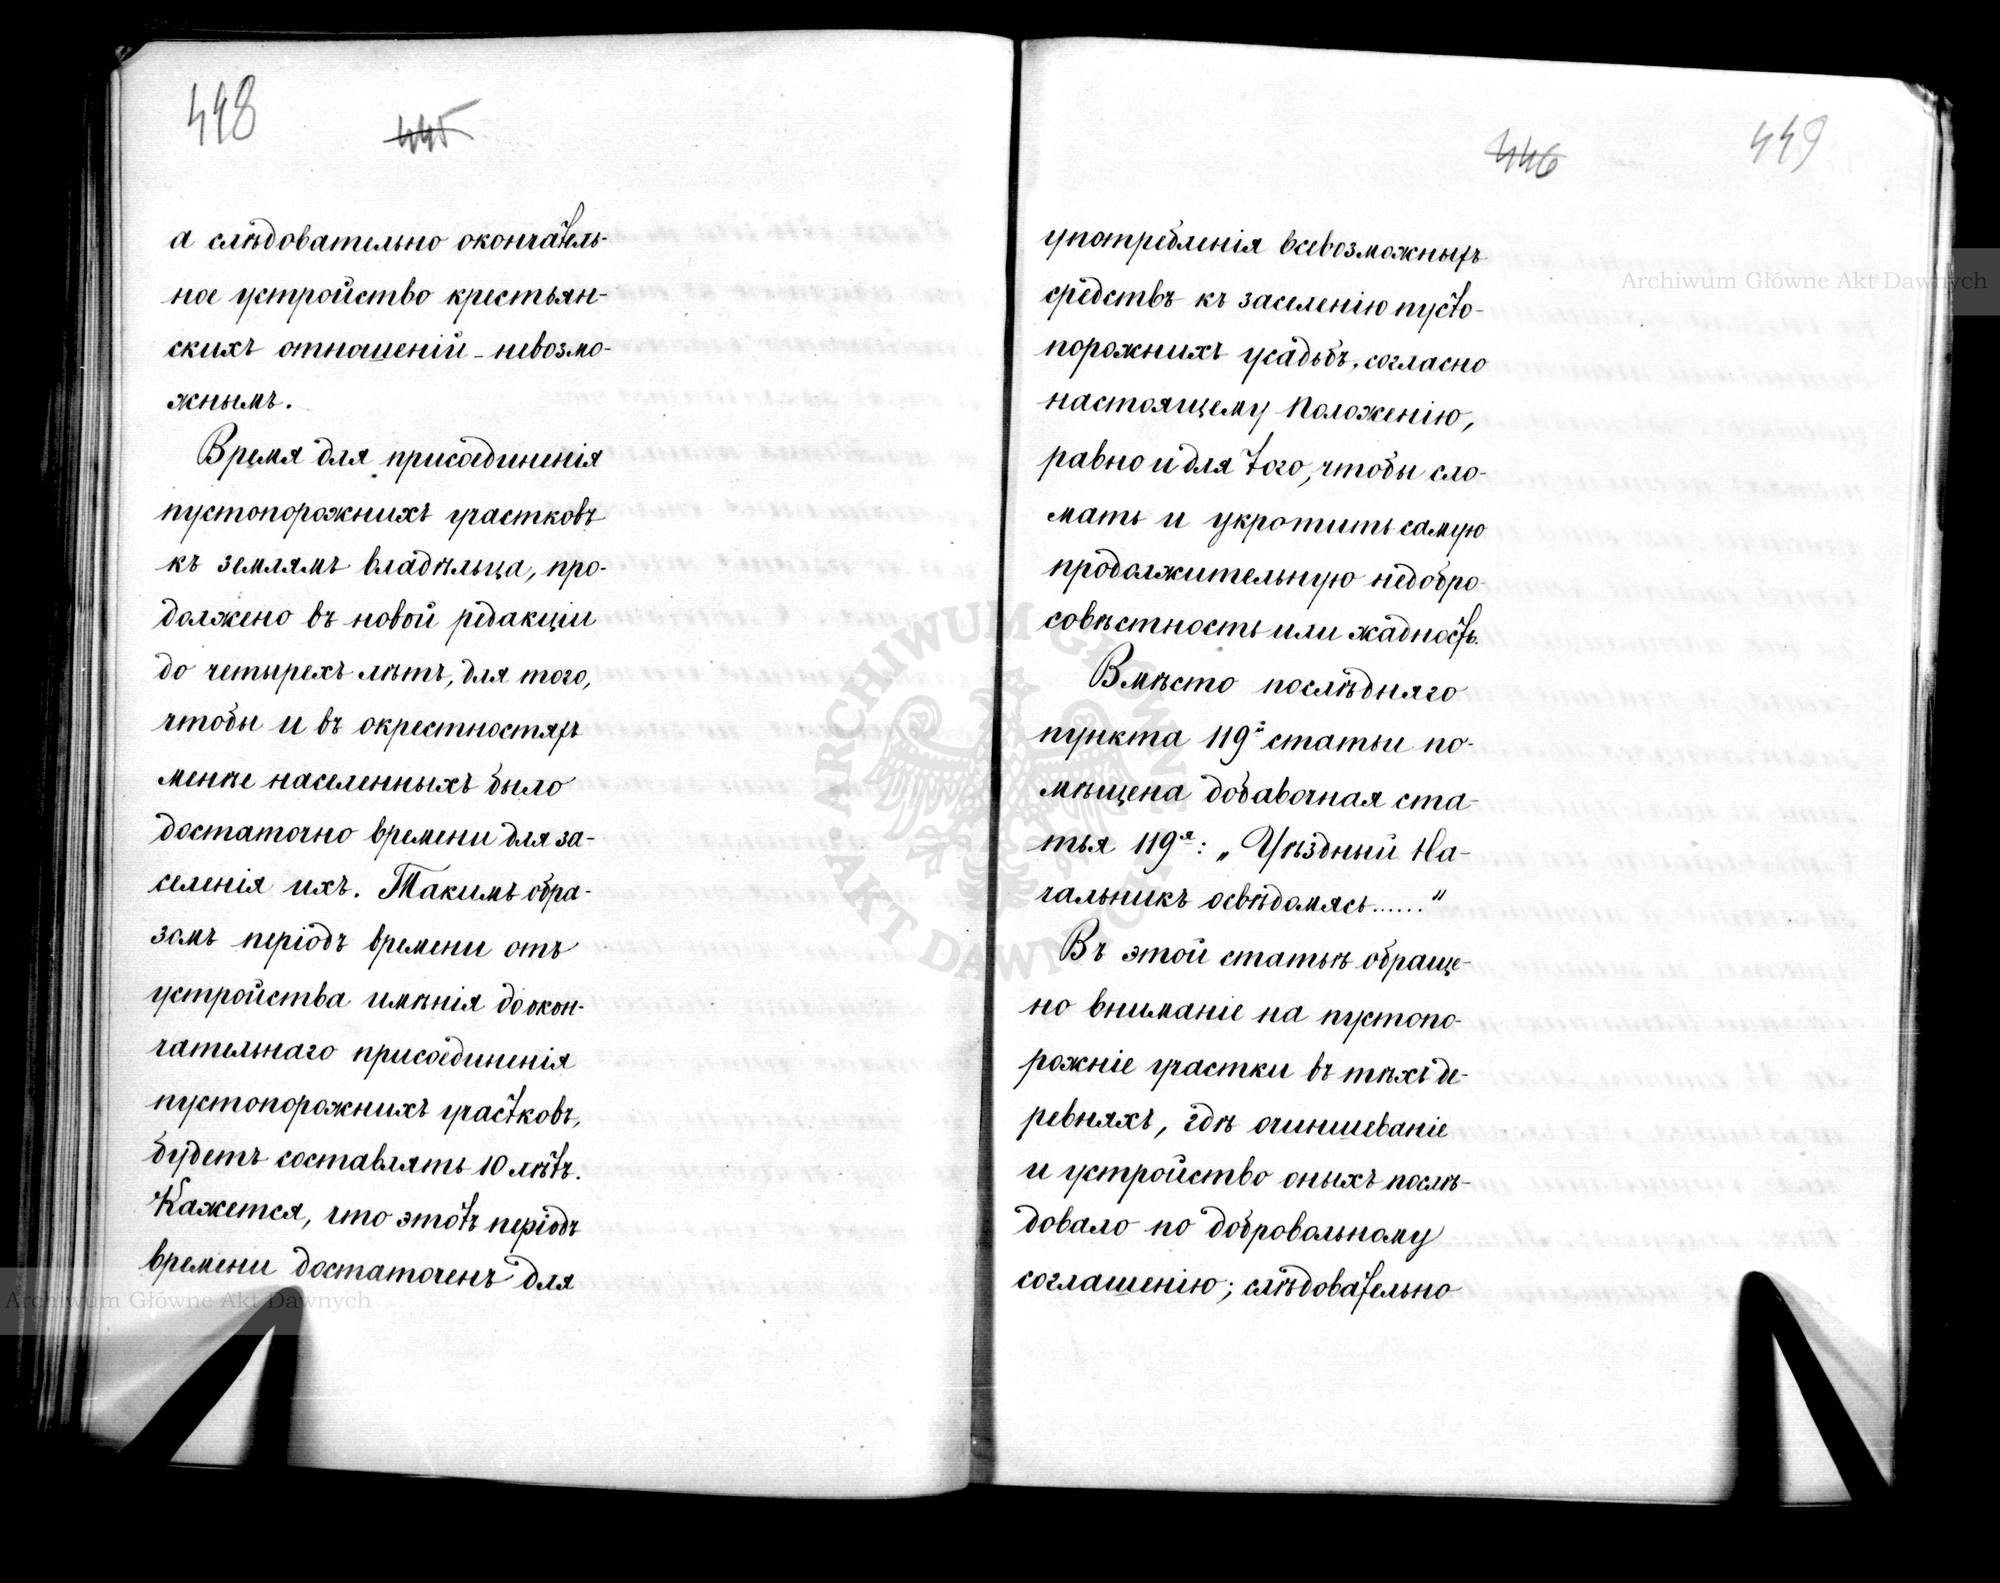 448
445
а слѣдовательно окончатель-
ное устройство крестьян-
скихъ отношеній – невозмо-
жнымъ.
Время для присоединенія
пустопорожнихъ участковъ
къ землямъ владѣльца, про-
должено въ новой редакціи
до четырехъ лѣтъ, для того,
чтобы и въ окрестностяхъ
менѣе населенныхъ было
достаточно времени для за-
селенія ихъ. Такимъ обра-
зомъ періодъ времени отъ
устройства имѣнія до окон-
чательнаго присоединенія
пустопорожнихъ участковъ,
будетъ составлять 10 лѣтъ.
Кажется, что этотъ періодъ
времени достаточенъ для
446
449
употребленія всевозможныхъ
средствъ къ заселенію пусто-
порожнихъ усадьбъ, согласно
настоящему Положенію,
равно и для того, чтобы сло-
мать и укротить самую
продолжительную недобро-
совѣстность или жадность.
Вмѣсто послѣдняго
пункта 119й статьи по-
мѣщена добавочная ста-
тья 119я: „Уѣздный На-
чальникъ освѣдомясь......"
Въ этой статьѣ обраще-
но вниманіе на пустопо-
рожніе участки въ тѣхъ де-
ревняхъ, гдѣ очиншеваніе
и устройство оныхъ послѣ-
довало по добровольному
соглашенію; слѣдовательно
Archiwum Główne Akt Dawnych
Archiwum Główne Akt Dawnych
ARCHIWUM GŁÓWNE AKT DAWNYCH